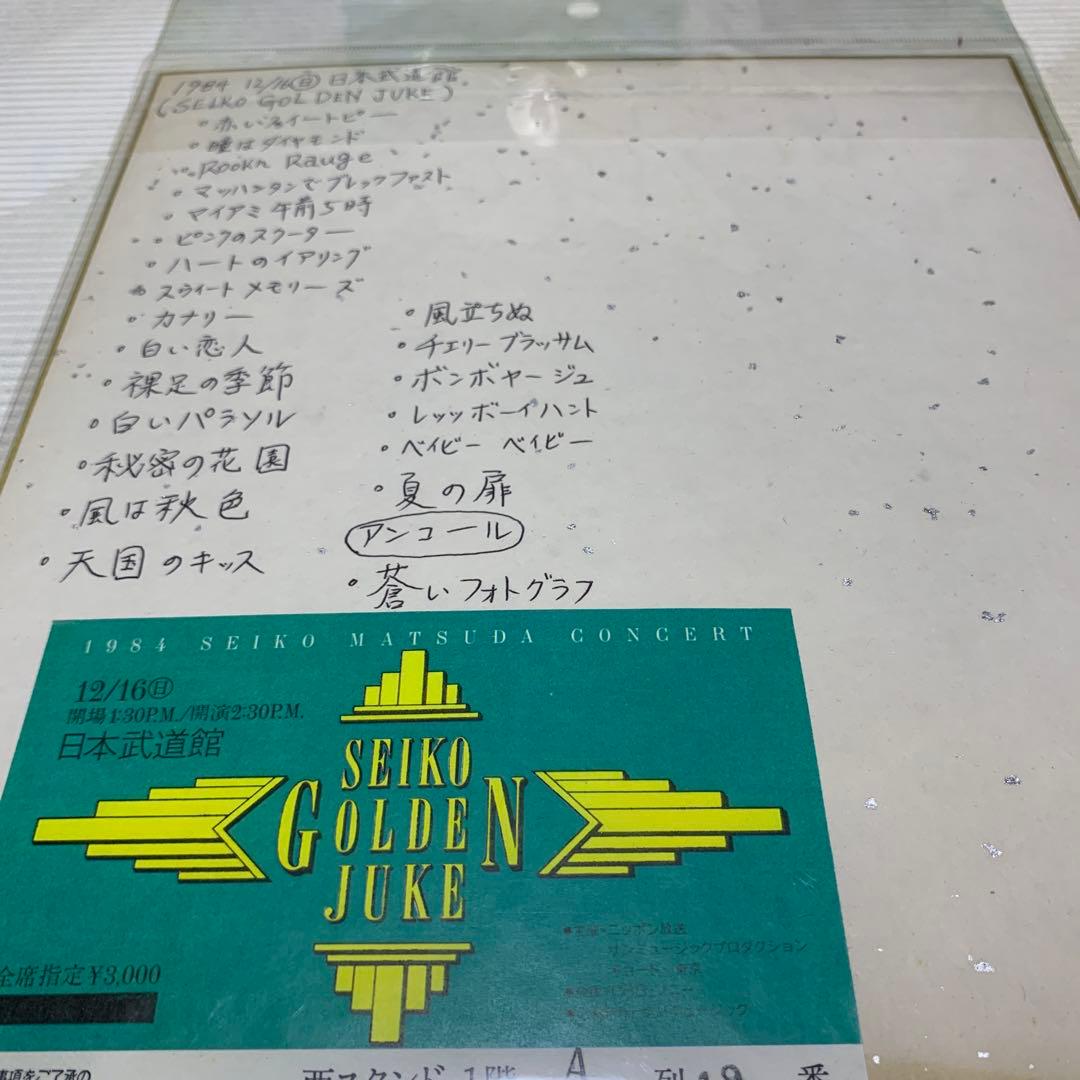 1984 12/16㊐ 日本武道館
(SEIKO GOLDEN JUKE)
・赤いスイートピー
・瞳はダイヤモンド
・Rockn Rauge
・マッハンタンでブレックファスト
・マイアミ午前5時
・ピンクのスクーター
・ハートのイアリング
・スウィート メモリーズ
・カナリー
・白い恋人
・裸足の季節
・白いパラソル
・秘密の花園
・風は秋色
・天国のキッス
・風立ちぬ
・チェリーブラッサム
・ボンボヤージュ
・レッツボーイハント
・ベイビー ベイビー
・夏の扉
アンコール
・蒼いフォトグラフ
1984 SEIKO MATSUDA CONCERT
12/16㊐
開場1:30P.M./開演2:30P.M.
日本武道館
SEIKO
GOLDEN
JUKE
●主催・ニッポン放送
サンミュージックプロダクション
全席指定¥3,000
事項をご了承の
西スタンド 1階 A 列 19 番